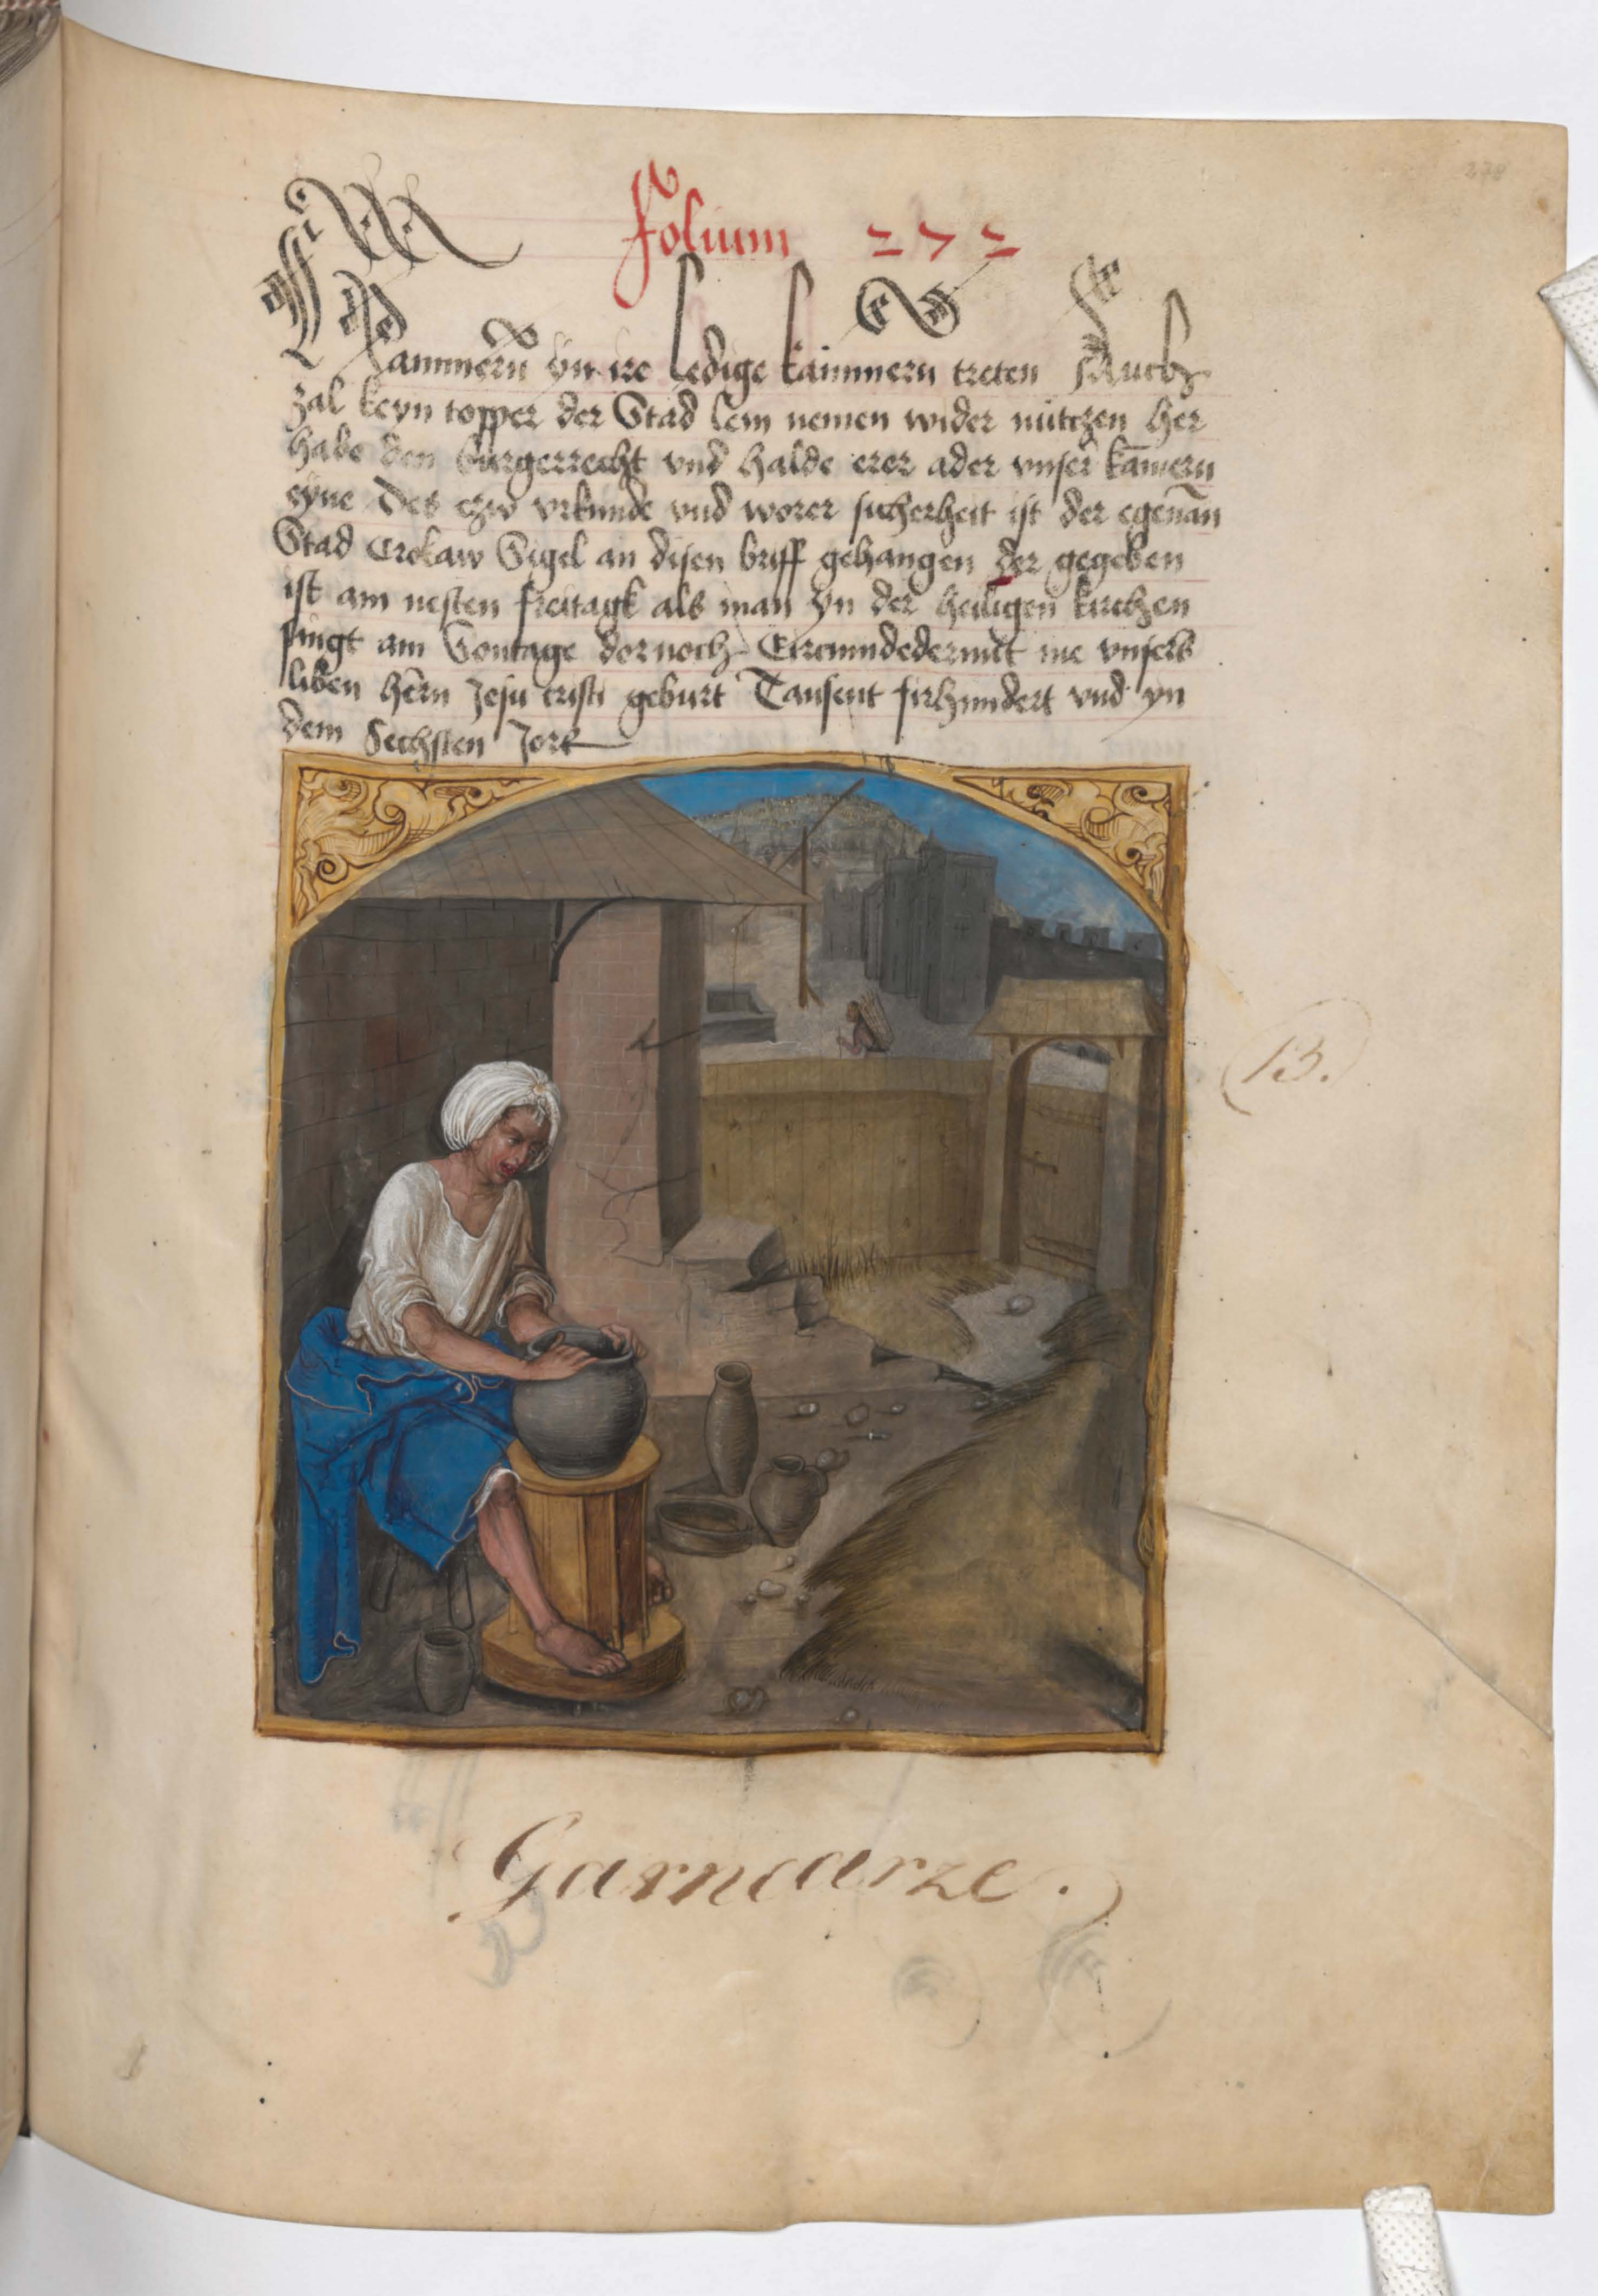 278
Folium 272
Kammern yn ire ledige kammern treten Auch
zal keyn topper der Stad lem nemen wider nutczen her
habe den burgerrecht vnd halde erer ader vnser kamern
eyne Des czw vrkunde vnd worer sicherheit ist der egenan
Stad Crokaw Sigel an disen briff gehangen der gegeben
ist am nesten freitagk als man yn der heiligen kirchen
singt am Sontage dornoch Circumdederunt me vnsers
liben hern Jesu cristi geburt Tausent firhundert vnd yn
dem Sechsten Jore
13.
Garncarze.